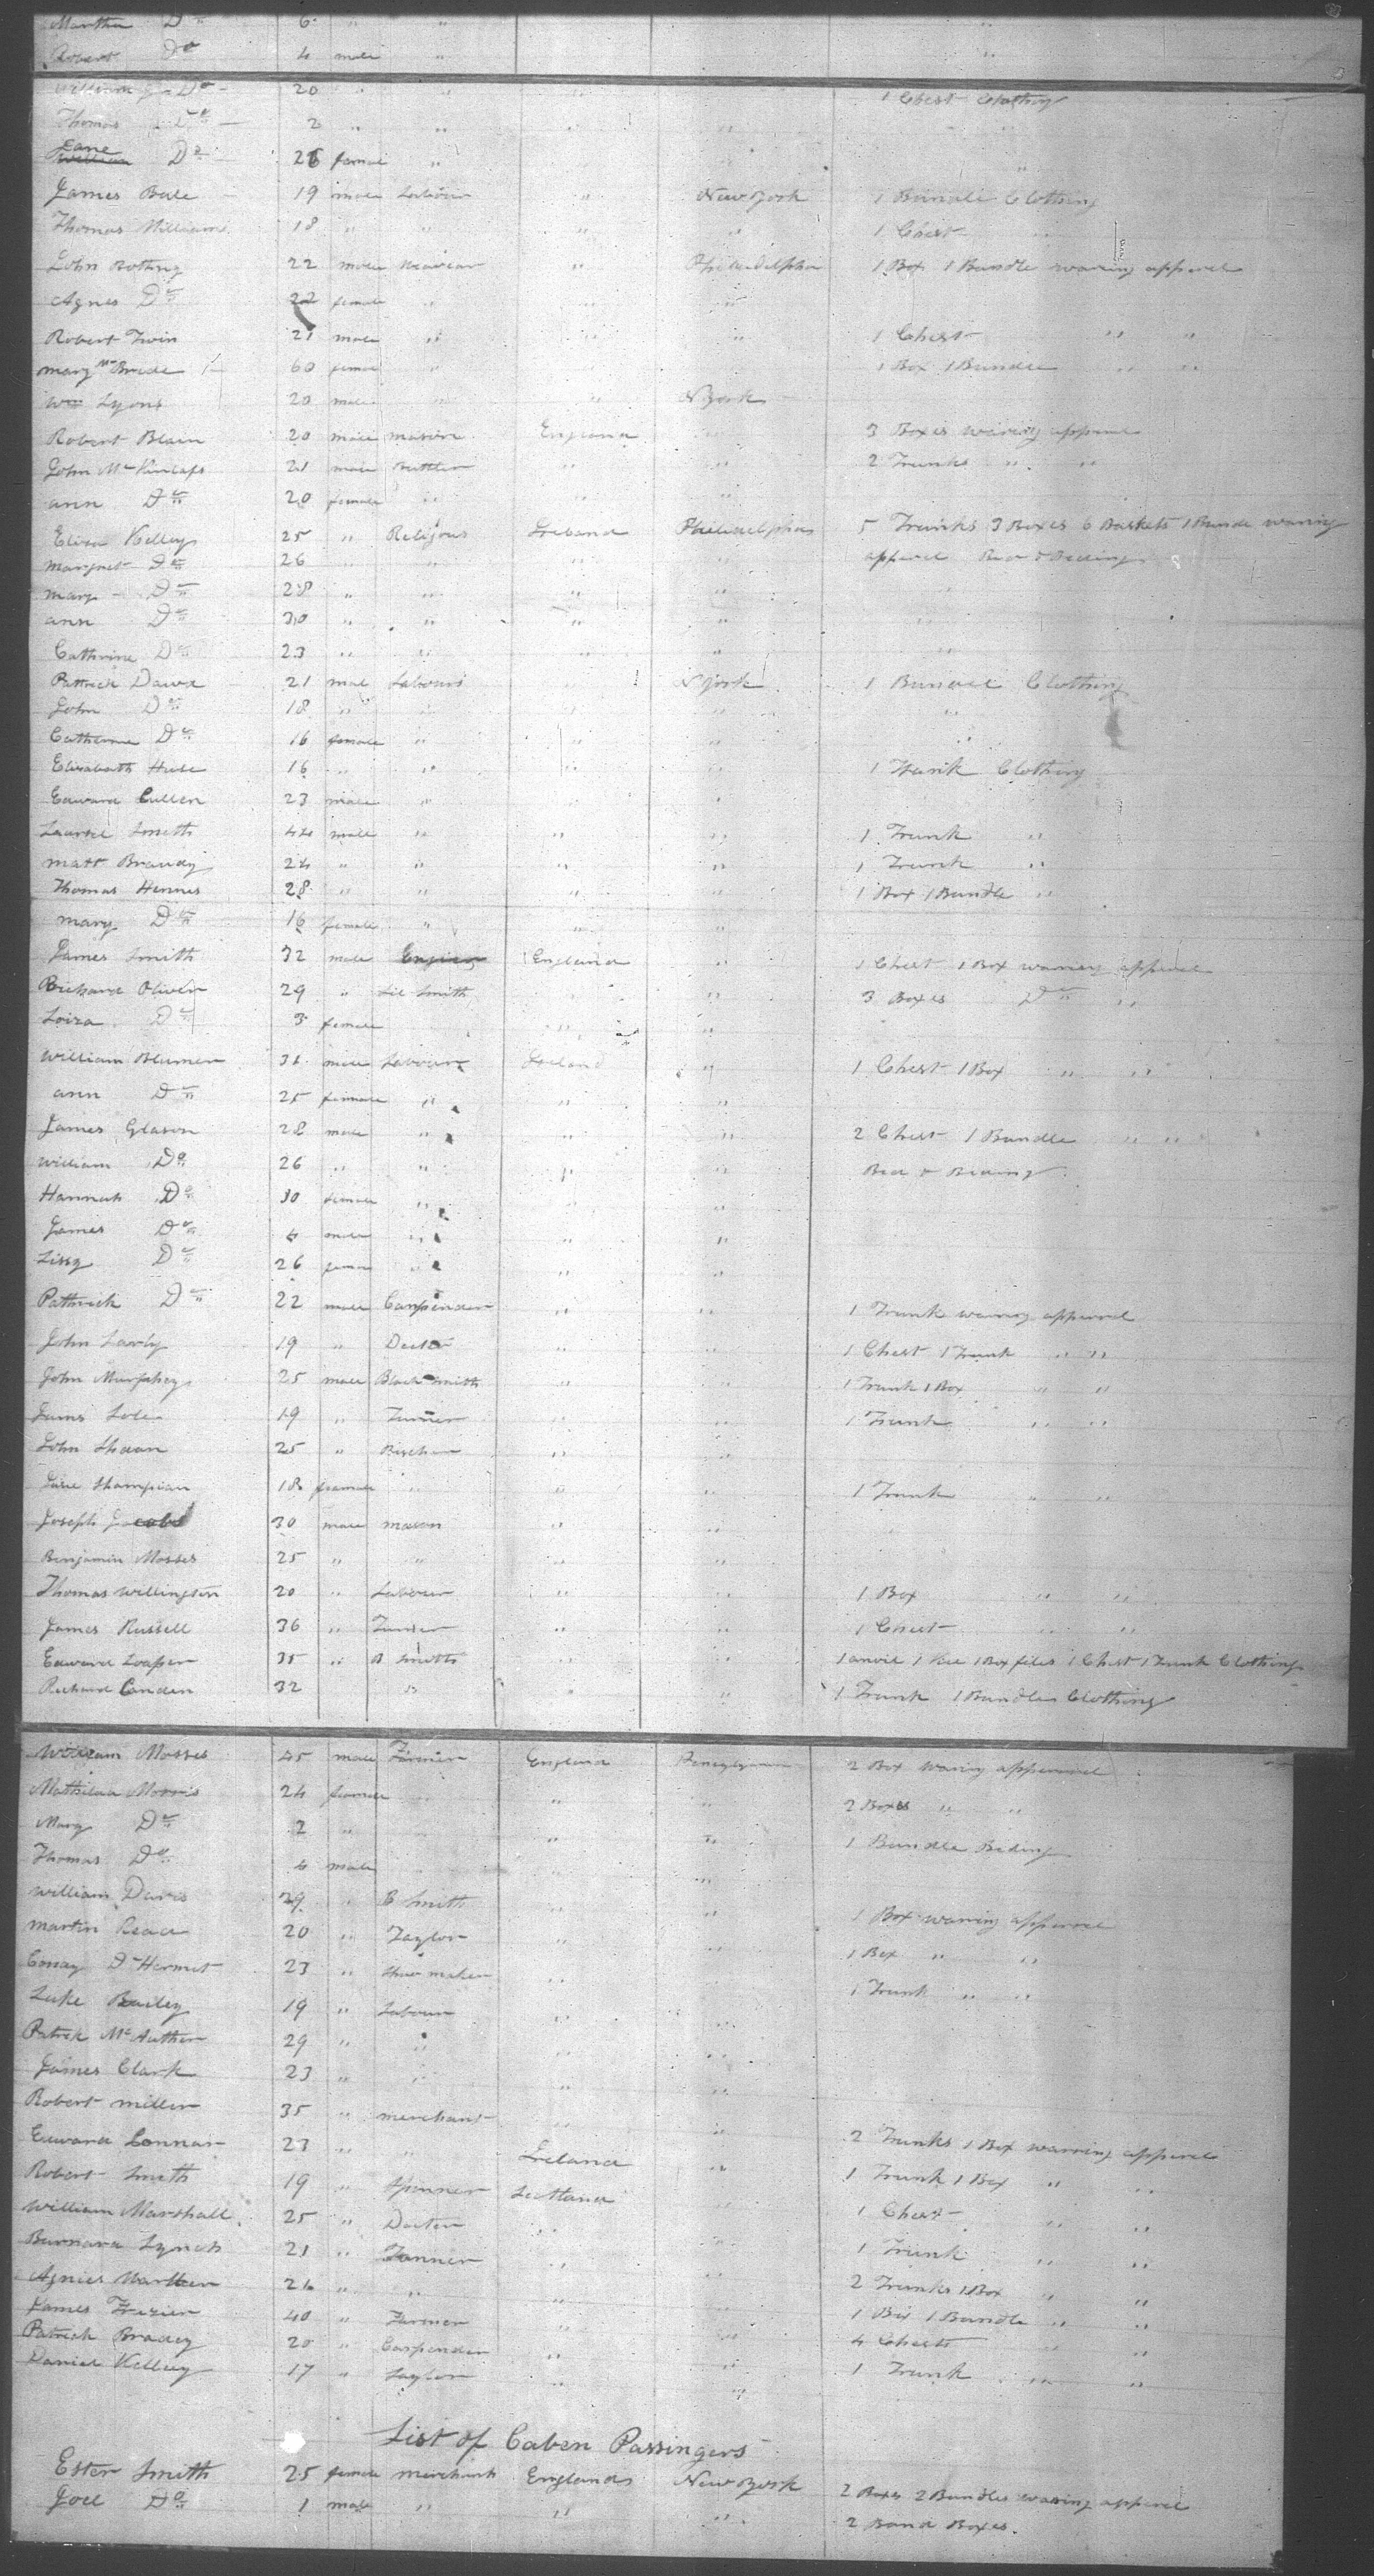 Martha Do 6 " "
Robert Do 4 male "
William Do 20 " " 1 Chest Clothing
Thomas Do 2 " " " "
Jane Do 26 female "
James Bule 19 male Labour " New York 1 Bundle Clothing
Thomas Williams 18 " " " " 1 Chest "
John Bothny 22 male Weavear " Philadelphia 1 Box 1 Bundle waring apparel
Agnes Do 22 female " " "
Robert Irvin 21 male " " 1 Chest " "
Mary McBride 60 female " 1 Box 1 Bundle " "
Wm Lyons 20 male " " N York
Robert Blain 20 male mason England " 3 Boxes waring apparel
John McKinlass 21 male Buttler " " 2 Trunks " "
ann Do 20 female " " "
Eliza Kelley 25 " Religous Ireland Philadelphia 5 Trunks 3 Boxes 6 Baskets 1 Bundle waring
Margret Do 26 " " " " apparel Bed & Beding
mary Do 28 " " " "
ann Do 30 " " " " "
Cathrine Do 23 " " " "
Patrick Dawd 21 male Labours " N York 1 Bundle Clothing
John Do 18 " " " " "
Catherine Do 16 female " " " "
Elizabeth Hule 16 " " " 1 Trunk Clothing
Edward Cullen 23 male " " "
Smith 44 male " " " 1 Trunk "
matt Brandy 24 " " " " 1 Trunk "
Thomas Hennes 28 " " " " 1 Box 1 Bundle "
mary Do 16 female " " "
James Smith 32 male England " 1 Chest 1 Box waring apparel
Richard Oliver 29 " Smith " " 3 Boxes Do "
Loiza Do 3 female " "
William Blumer 31 male Labour Ireland " 1 Chest 1 Box " "
ann Do 25 female " " "
James Glason 28 male " " " 2 Chest 1 Bundle " "
William Do 26 " " " " Bed & Beding
Hannah Do 30 female " " "
James Do 4 male " " "
Lissy Do 26 female " " "
Pathrick Do 22 male Carpinder " " 1 Trunk waring apparel
John Lawly 19 " Docter " " 1 Chest 1 Trunk " "
John Murphey 25 male Black Smith " " 1 Trunk 1 Box " "
James Lole 19 " Turner " " 1 Trunk " "
John Shaan 25 " " "
Jane Thompson 18 female " " " 1 Trunk " "
Joseph Jacobs 30 male mason " "
Benjamin Mosses 25 " " " "
Thomas Wellington 20 " Labour " " 1 Box " "
James Russell 36 " Turner " " 1 Chest " "
Edward 35 " B Smith " " 1 anvil 1 Vice 1 Box files 1 Chest 1 Trunk Clothing
Richard Canden 32 " " " 1 Trunk 1 Bundles Clothing
William Mosses 45 male Farmer England Pensylvania 2 Box waring apparel
Mathilda Morris 24 female " " " 2 Boxes " "
Mary Do 2 " " " 1 Bundle Beding
Thomas Do 4 male " " "
William Davis 29 " B Smith " " 1 Box waring apparel
Martin Read 20 " Taylor " " 1 Box " "
D Hermit 23 " Shoe maker " 1 Trunk " "
Luke Bailey 19 " Labour " "
Patrick McAuther 29 " " " "
James Clark 23 " " " "
Robert miller 35 " merchant " "
Edward Connar 23 " " Ireland " 2 Trunks 1 Box waring apparel
Robert Smith 19 " Spinner Scotland " 1 Trunk 1 Box " "
William Marshall 25 " Docter " " 1 Chest " "
Barnard Lynch 21 " Tanner " " 1 Trunk " "
Agnies 24 " " " " 2 Trunks 1 Box " "
James Frazier 40 " Farmer " " 1 Box 1 Bundle " "
Patrick Bradey 20 " Carpender " " 4 Chests " "
Daniel Kelley 17 " Taylor " " 1 Trunk " "
List of Caben Passingers
Ester Smith 25 female merchant England New York 2 Boxes 2 Bundles waring apparel
Joel Do 1 male " " " 2 Band Boxes.